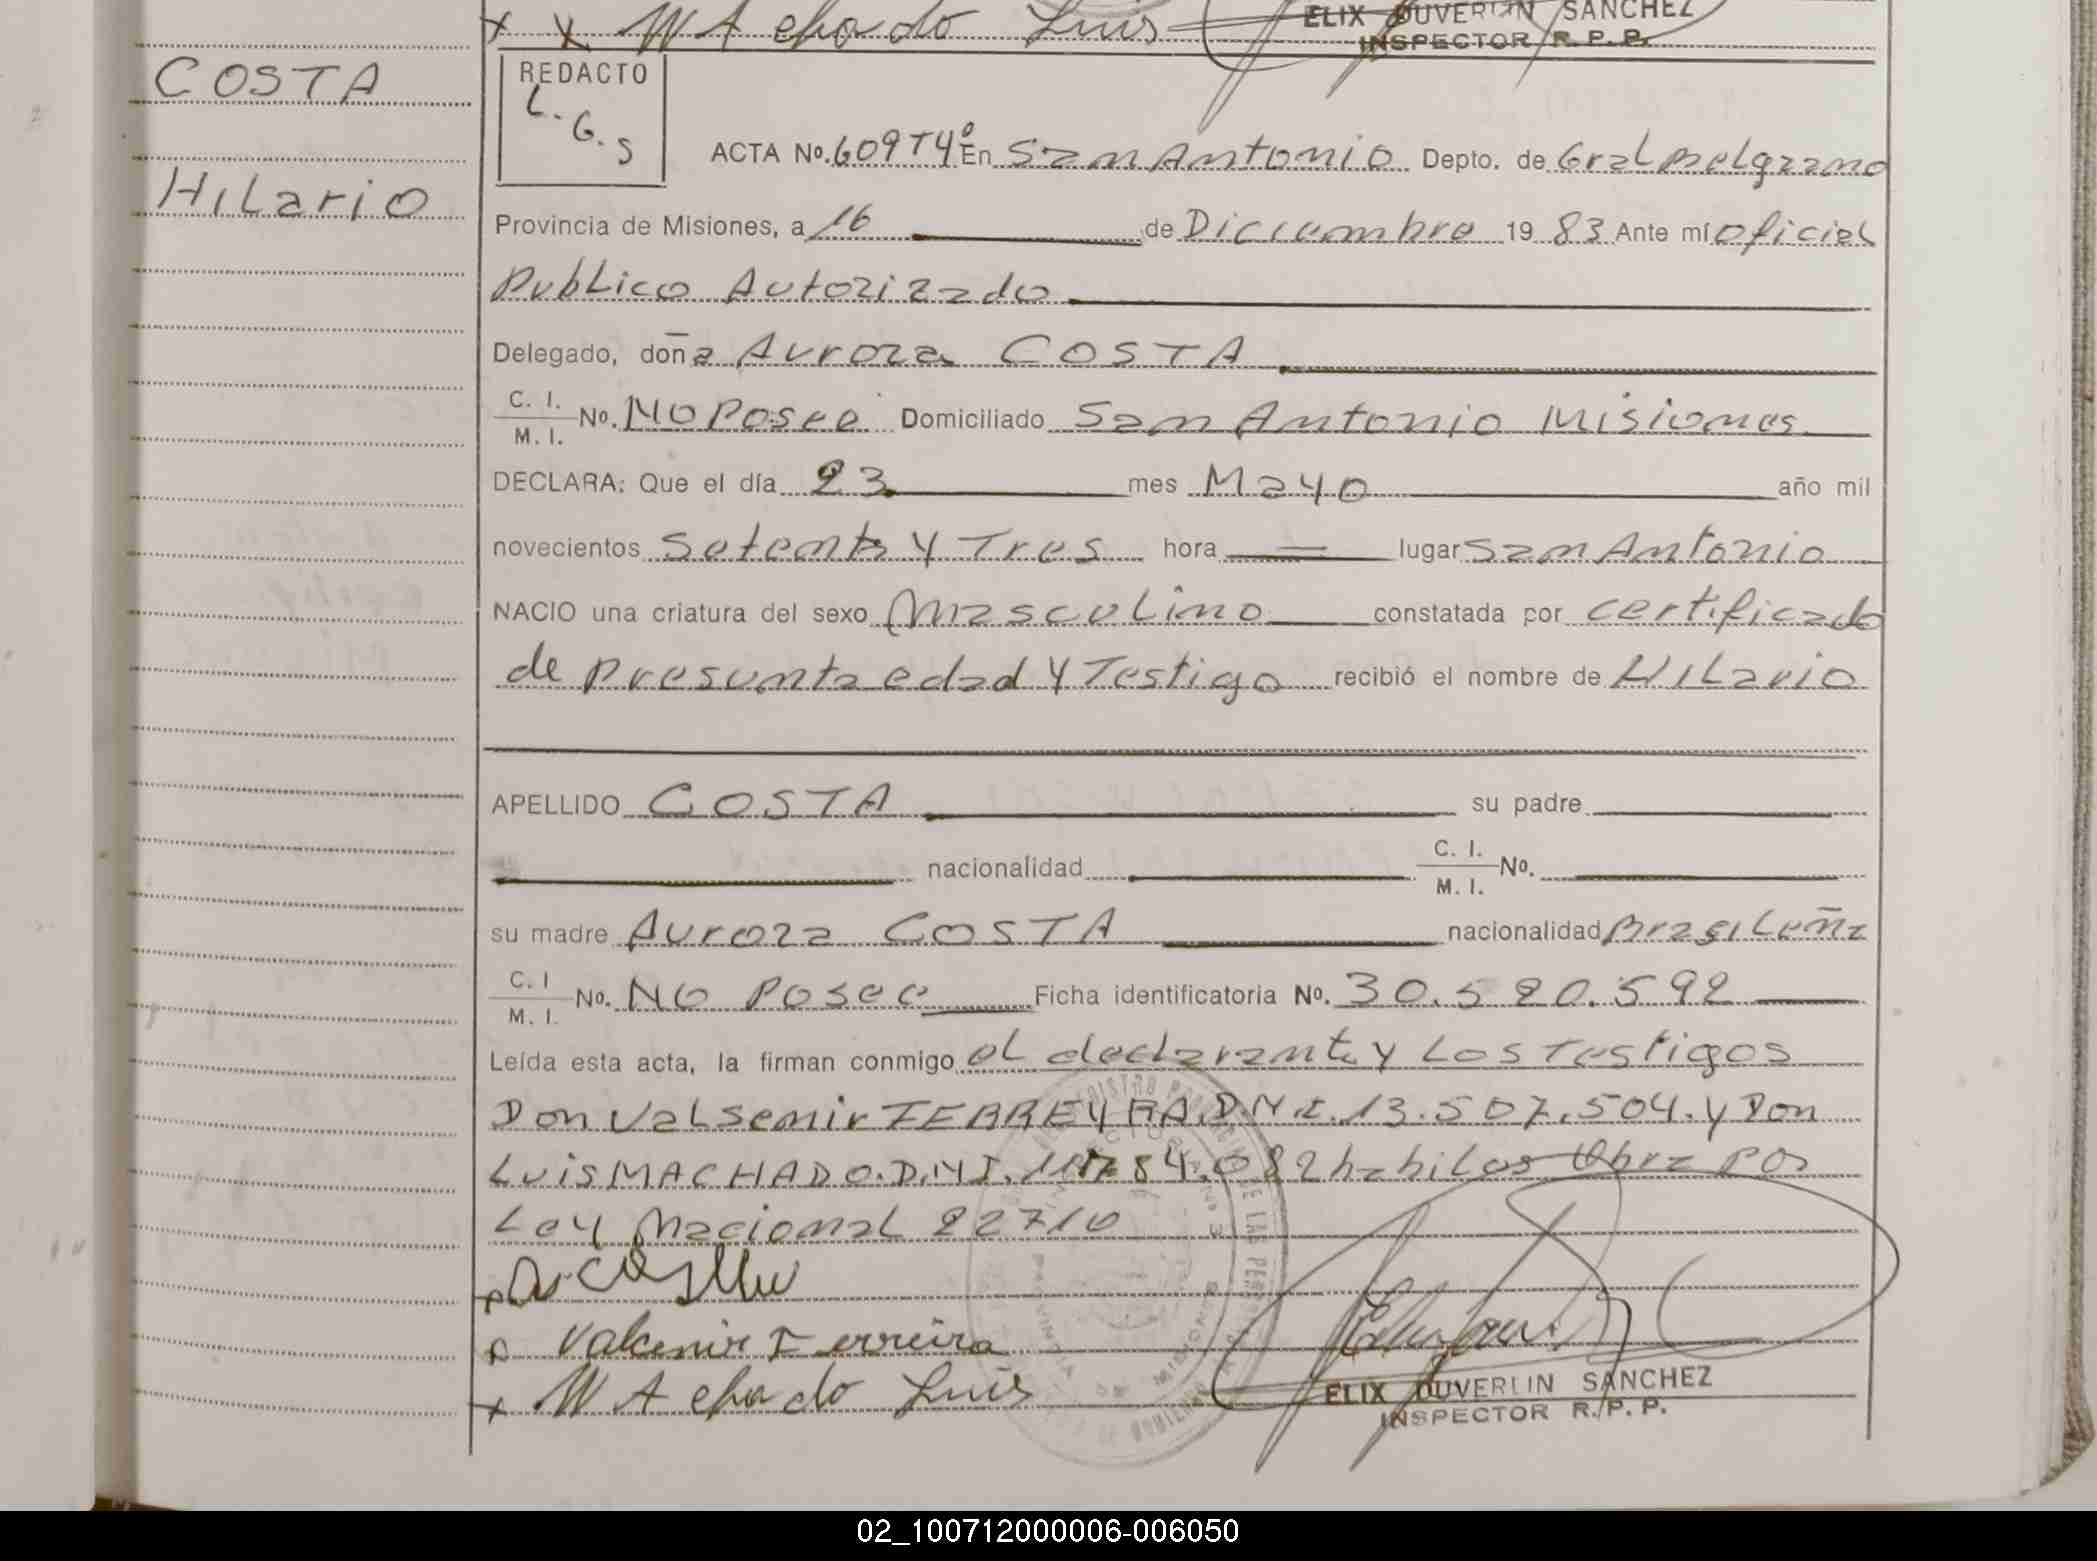 x x MAchado Luis
ELIX DUVERLIN SANCHEZ
INSPECTOR R. P. P.
COSTA
Hilario
REDACTO
L. G. S
ACTA No. 609 T4º En San Antonio Depto. de Gral Belgrano
Provincia de Misiones, a 16 de Diciembre 19 83 Ante mí oficial
Publico Autorizado
Delegado, doña Aurora COSTA
C. I. / M. I. No. No Posee Domiciliado San Antonio Misiones
DECLARA: Que el día 23 mes Mayo año mil
novecientos Setenta y Tres hora lugar San Antonio
NACIO una criatura del sexo Masculino constatada por certificado
de Presunta edad y Testigo recibió el nombre de Hilario
APELLIDO COSTA su padre
nacionalidad C. I. / M. I. No.
su madre Aurora COSTA nacionalidad Brasileña
C. I / M. I. No. No Posee Ficha identificatoria No. 30.520.592
Leída esta acta, la firman conmigo el declarante y Los Testigos
Don Valsemir FERREYRA D.N.I. 13.507.504. y Don
Luis MACHADO. D.N.I. 11.784.082 habiles Obra por
Ley Nacional 22710
Valcemir Ferreira
x MAchado Luis
ELIX DUVERLIN SANCHEZ
INSPECTOR R. P. P.
02_100712000006-006050